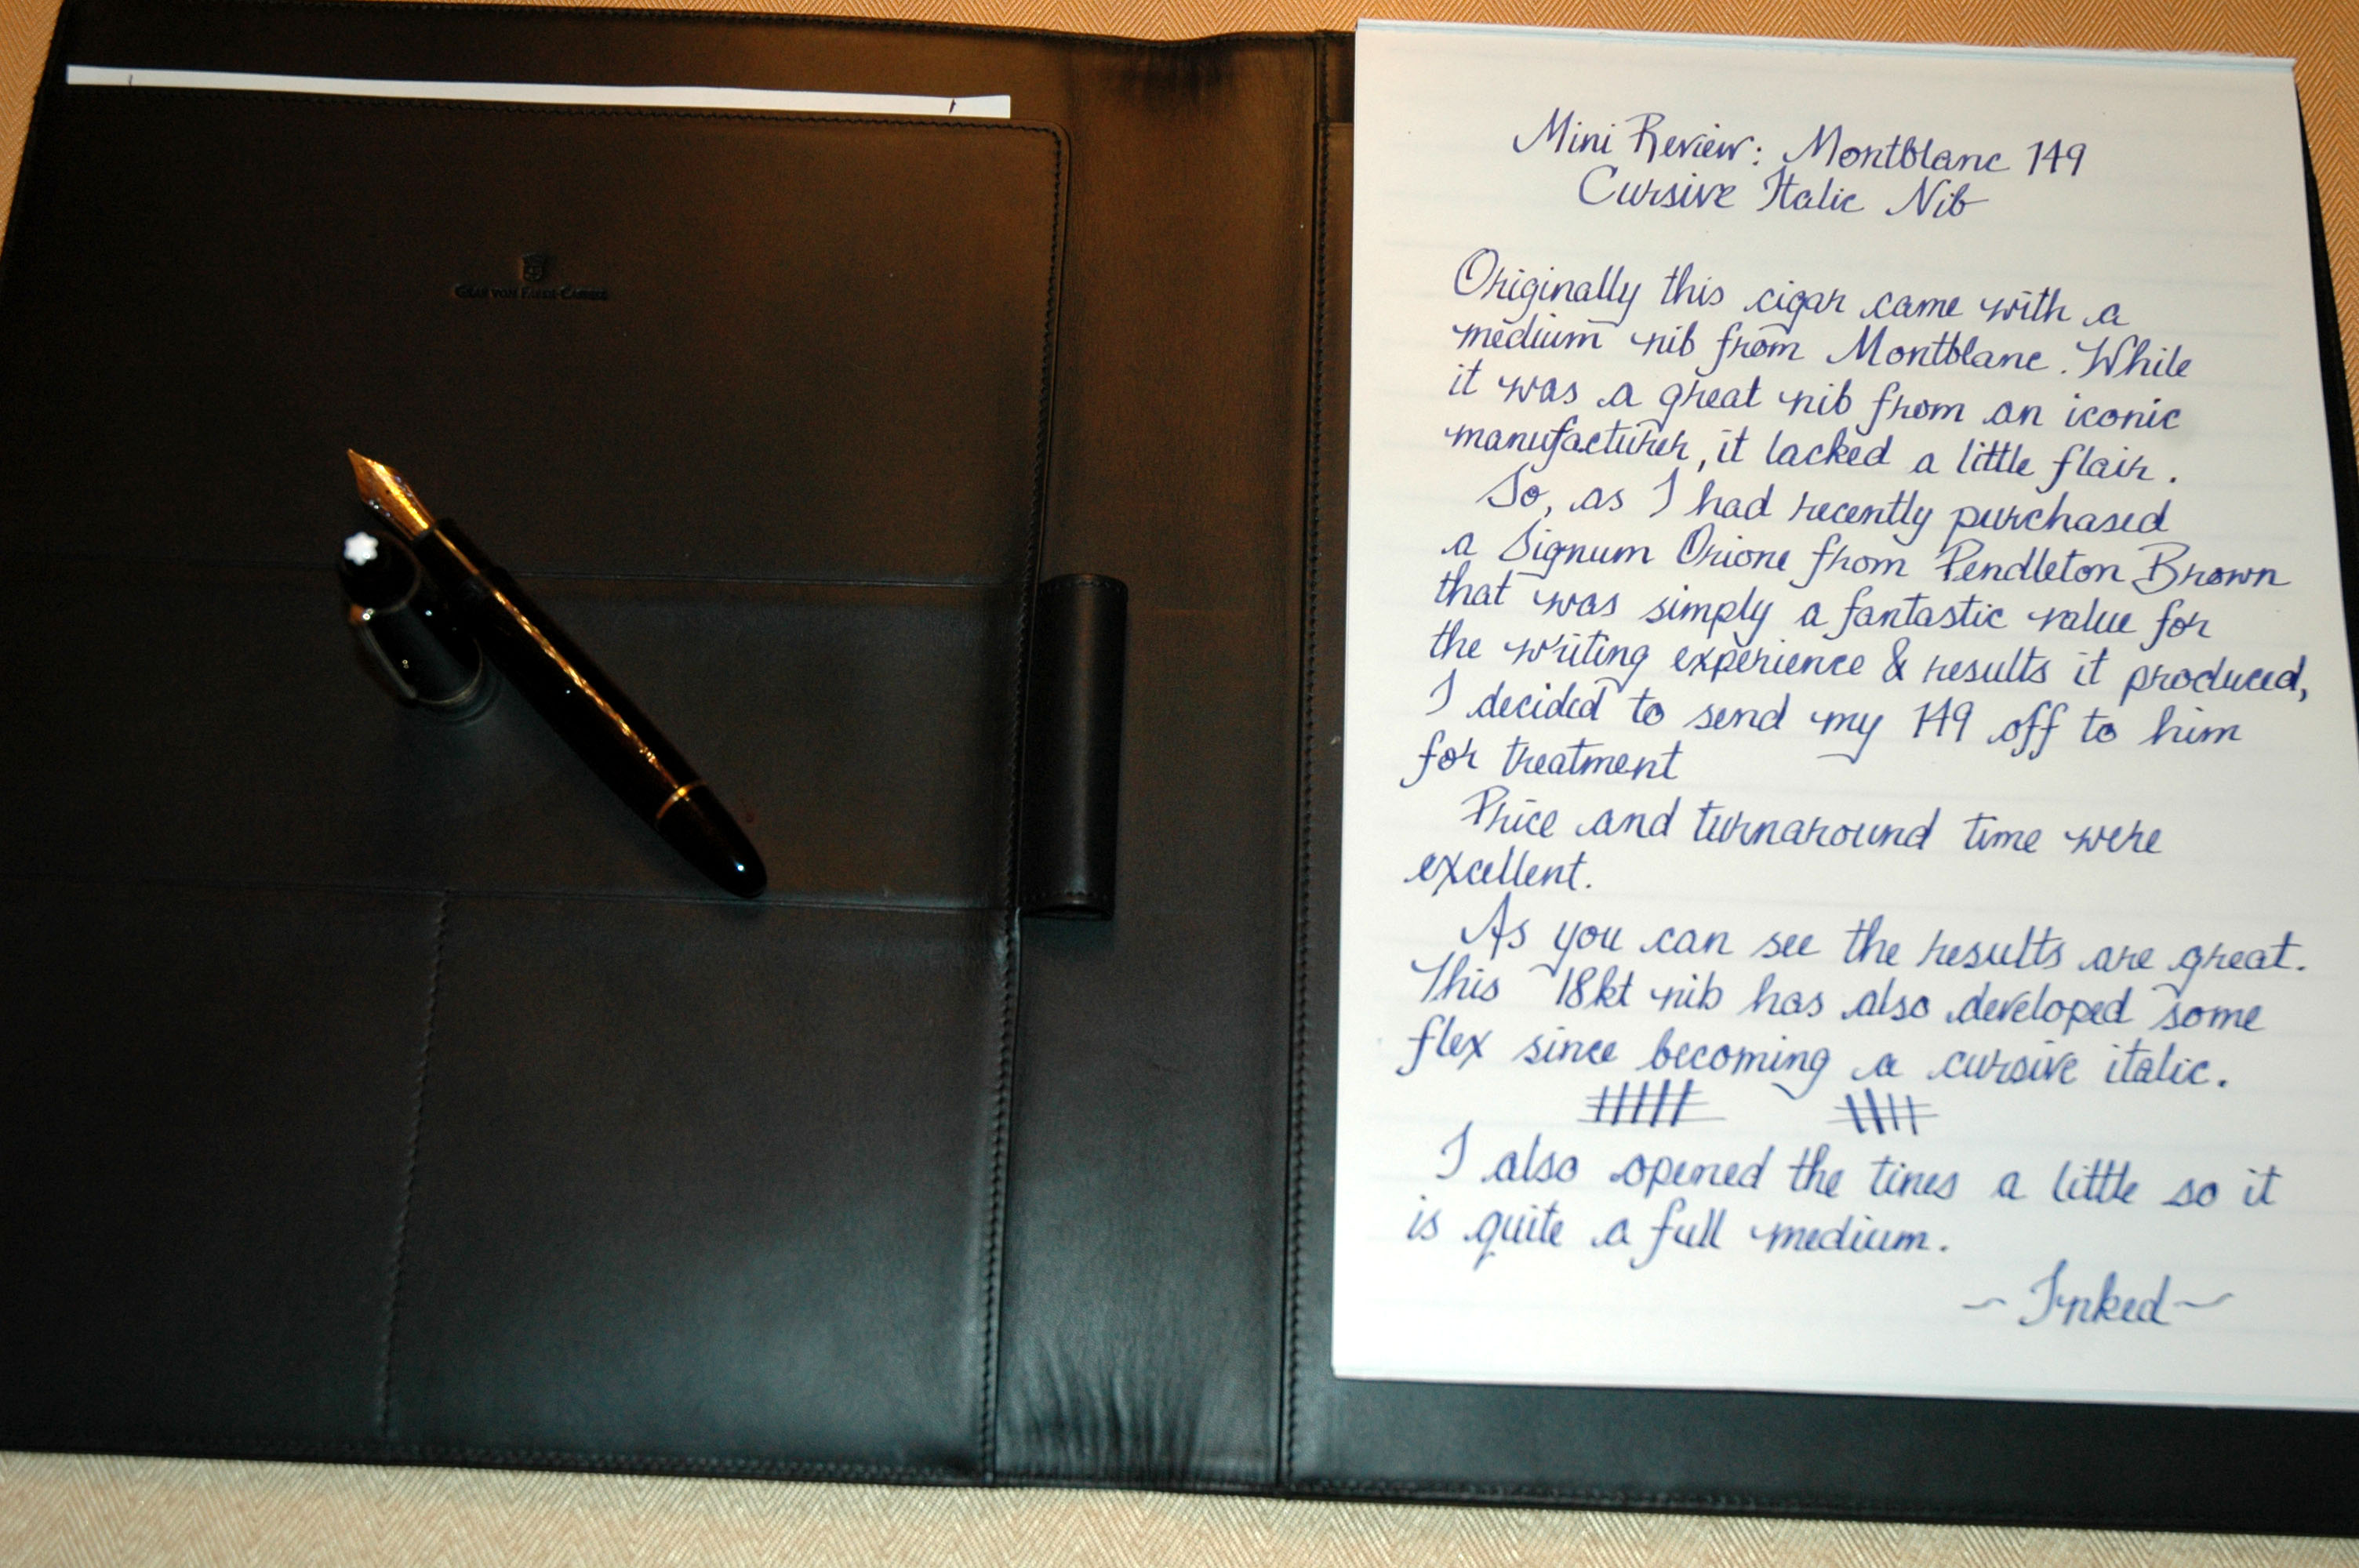 GRAF VON FABER-CASTELL
Mini Review: Montblanc 149
Cursive Italic Nib
Originally this cigar came with a
medium nib from Montblanc. While
it was a great nib from an iconic
manufacturer, it lacked a little flair.
So, as I had recently purchased
a Signum Orione from Pendleton Brown
that was simply a fantastic value for
the writing experience & results it produced,
I decided to send my 149 off to him
for treatment
Price and turnaround time were
excellent.
As you can see the results are great.
This 18kt nib has also developed some
flex since becoming a cursive italic.
I also opened the tines a little so it
is quite a full medium.
~ Inked ~